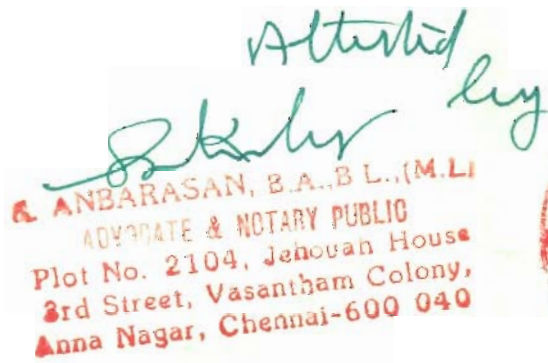 Attested
by
K. ANBARASAN, B.A.,B L.,(M.L)
ADVOCATE & NOTARY PUBLIC
Plot No. 2104, Jehovah House
3rd Street, Vasantham Colony,
Anna Nagar, Chennai-600 040